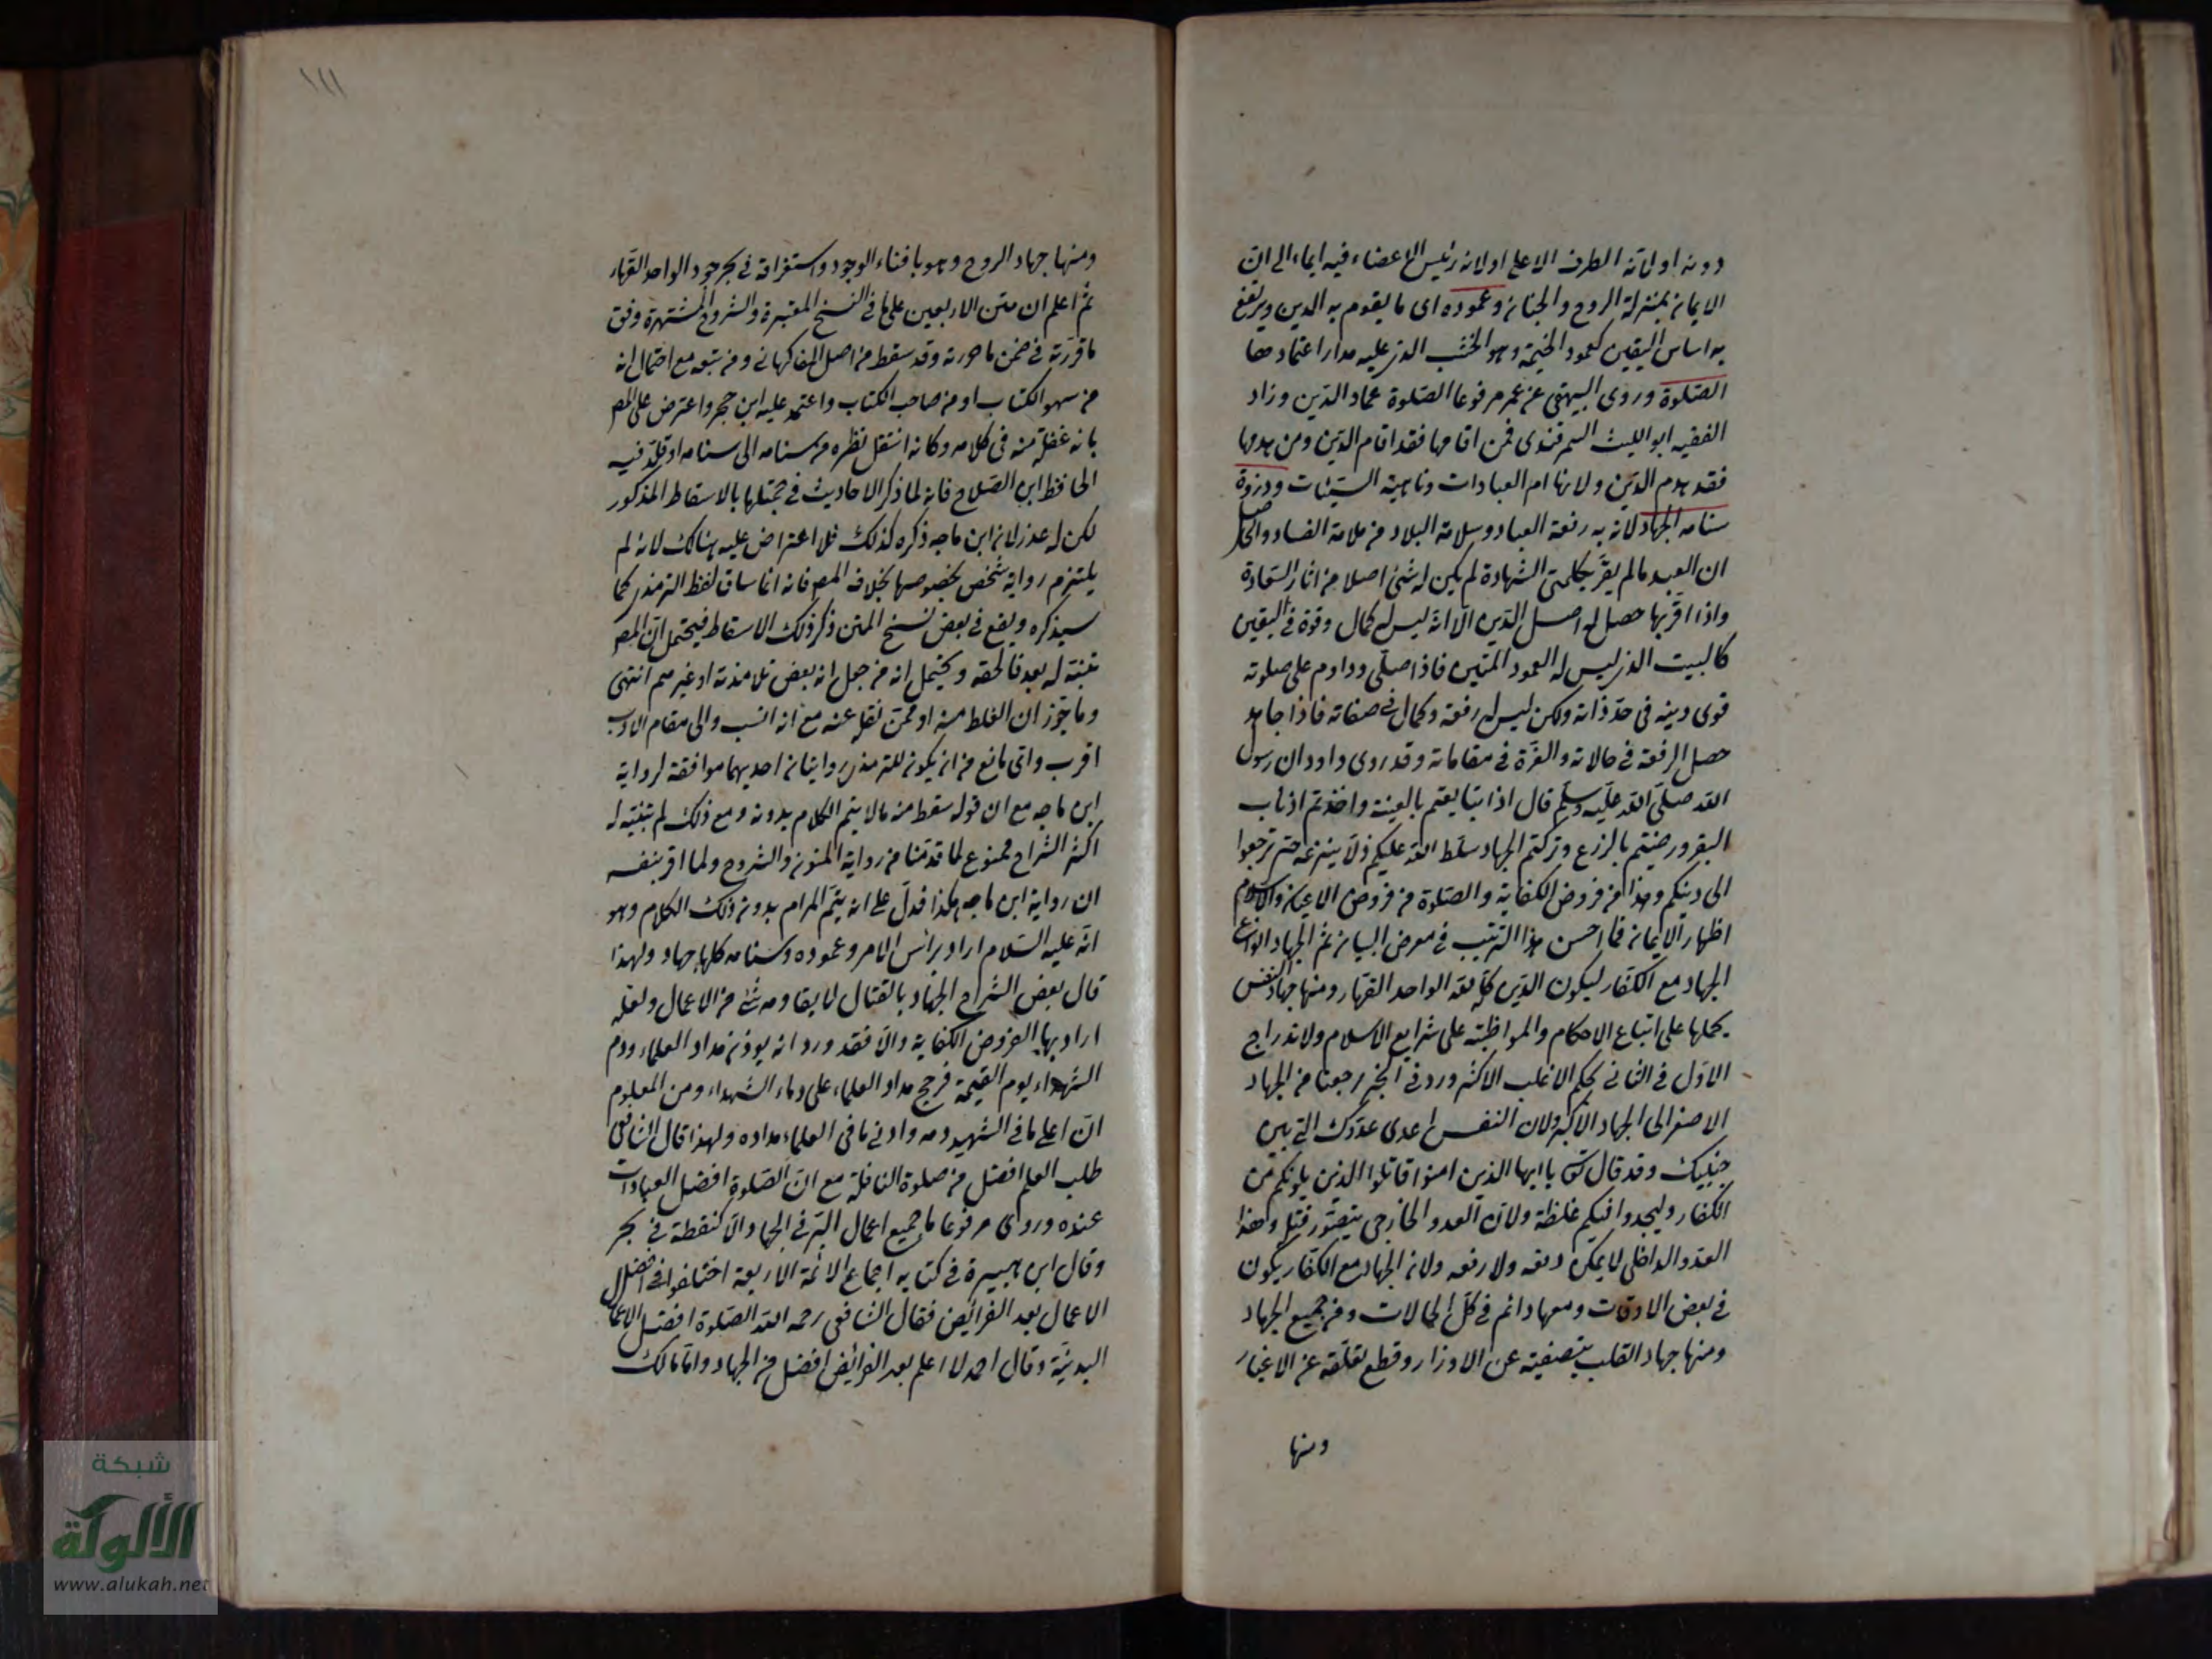 دونه او لانه الطرف الاعلى او لانه رئيس الاعضاء فيه ايماء الى ان
الايمان بمنزلة الروح والجنان وعموده اى ما يقوم به الدين ويرتفع
به اساس اليقين كعمود الخيمة وهو الخشب الذى عليه مدار اعتمادها
الصلوة وروى البيهقى عن عمر مرفوعا الصلوة عماد الدين وزاد
الفقيه ابو الليث السمرقندى فمن اقامها فقد اقام الدين ومن هدمها
فقد هدم الدين ولانها ام العبادات وناهية السيئات وذروة
سنامه الجهاد لانه به رفعة العباد وسلامة البلاد من ملامة الفساد والحاصل
ان العبد مالم يقر بكلمتى الشهادة لم يكن له شئ اصلا من اثار السعادة
واذا اقر بها حصل له اصل الدين الا انه ليس له كمال وقوة فى اليقين
كالبيت الذى ليس له العمود المتين فاذا صلى وداوم على صلوته
قوى دينه فى حد ذاته ولكن ليس له رفعة وكمال فى صفاته فاذا جاهد
حصل الرفعة فى حالاته والعزة فى مقاماته وقد روى داود ان رسول
الله صلى الله عليه وسلم قال اذا تبايعتم بالعينة واخذتم اذناب
البقر ورضيتم بالزرع وتركتم الجهاد سلط الله عليكم ذلا ينزعه حتى ترجعوا
الى دينكم وهذا من فروض الكفاية والصلوة من فروض الاعيان والاسلام
اظهار الايمان فما احسن هذا الترتيب فى معرض البيان ثم الجهاد انواع
الجهاد مع الكفار ليكون الدين كله لله الواحد القهار ومنها جهاد النفس
بحملها على اتباع الاحكام والمواظبة على شرايع الاسلام ولاندراج
الاول فى الثانى بحكم الاغلب الاكثر ورد فى الخبر رجعنا من الجهاد
الاصغر الى الجهاد الاكبر ولان النفس اعدى عدوك التى بين
جنبيك وقد قال تعالى يا ايها الذين امنوا قاتلوا الذين يلونكم من
الكفار وليجدوا فيكم غلظة ولان العدو الخارجى يتصور قتله وهذا
العدو الداخلى لا يمكن دفعه ولا رفعه ولان الجهاد مع الكفار يكون
فى بعض الاوقات ومعها دائم فى كل الحالات ومن جميع الجهاد
ومنها جهاد القلب بتصفيته عن الاوزار وقطع تعلقه عن الاغيار
ومنها
١١١
ومنها جهاد الروح وهو بافناء الوجود واستغراقه فى بحر جود الواحد القهار
ثم اعلم ان متن الاربعين على ما فى النسخ المعتبرة والشروح المشتهرة وفق
ما قررته فى ضمن ما حررته وقد سقط من اصل الفاكهانى ومن تبعه مع احتمال انه
من سهو الكتاب او من صاحب الكتاب واعتمد عليه ابن حجر واعترض على المص
بانه غفلة منه فى كلامه وكانه انتقل نظره من سنامه الى سنامه او قلد فيه
الحافظ ابن الصلاح فانه لما ذكر الاحاديث فى جملتها بالاسقاط المذكور
لكن له عذر لان ابن ماجه ذكره كذلك فلا اعتراض عليه هنالك لانه لم
يلتزم رواية شخص بخصوصها بخلاف المص فانه انما ساق لفظ الترمذى كما
سيذكره ويقع فى بعض نسخ المتن ذكر ذلك الاسقاط فيحتمل ان المص
تنبه له بعد فالحقه ويحتمل انه من جعل انه بعض تلامذته او غيرهم انتهى
وما جوز ان الغلط منه او ممن نقله عنه مع انه انسب والى مقام الادب
اقرب واى مانع من ان يكون للترمذى روايتان احديهما موافقة لرواية
ابن ماجه مع ان قوله سقط منه مالا يتم الكلام بدونه ومع ذلك لم يتنبه له
اكثر الشراح ممنوع لما قدمنا من رواية المتون والشروح ولما اقر بنفسه
ان رواية ابن ماجه هكذا فدل على انه يتم المرام بدون ذلك الكلام وهو
انه عليه السلام اراد براس الامر وعموده وسنامه كلها جهاد ولهذا
قال بعض الشراح الجهاد بالقتال لا يقاومه شئ من الاعمال ولعله
اراد بها الفروض الكفاية والا فقد ورد انه يوزن مداد العلماء ودم
الشهداء يوم القيمة فرجح مداد العلماء على دماء الشهداء ومن المعلوم
ان اعلى ما فى الشهيد دمه وادنى ما فى العلماء مداده ولهذا قال الشافعى
طلب العلم افضل من صلوة النافلة مع ان الصلوة افضل العبادات
عنده وروى مرفوعا ما جميع اعمال البر فى الجهاد الا كنقطة فى بحر
وقال ابن هبيرة فى كتابه اجماع الائمة الاربعة اختلفوا فى افضل
الاعمال بعد الفرائض فقال الشافعى رحمه الله الصلوة افضل الاعمال
البدنية وقال احمد لا اعلم بعد الفرائض افضل من الجهاد واما مالك
شبكة
الألوكة
www.alukah.net